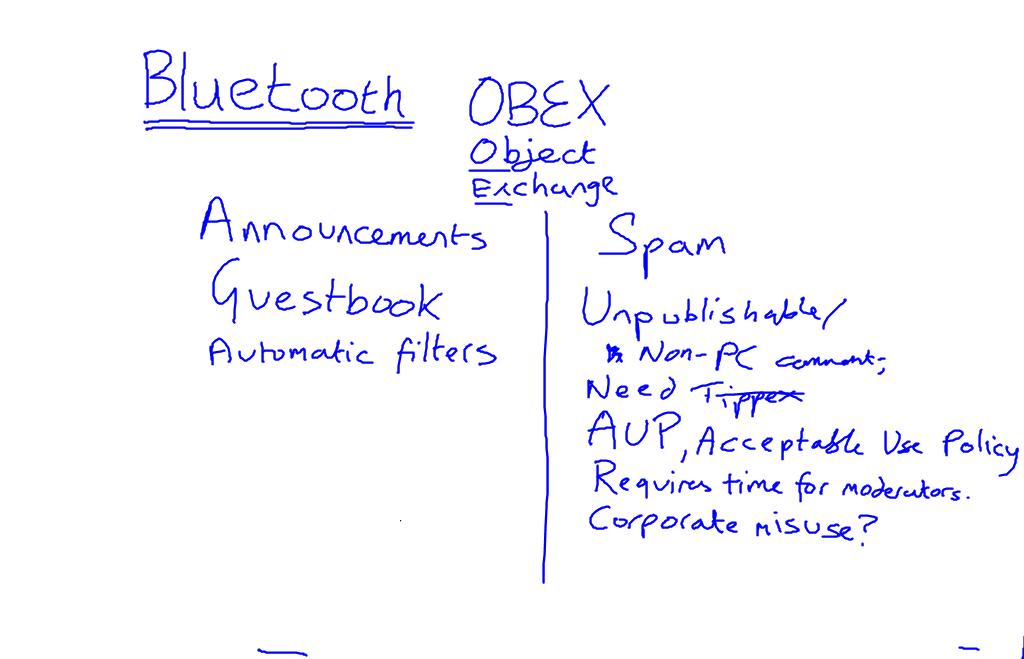 Bluetooth OBEX
Object
Exchange
Announcements
Guestbook
Automatic filters
Spam
Unpublishable/
Non-PC comments
Need Tippex
AUP, Acceptable Use Policy
Requires time for moderators.
Corporate misuse?